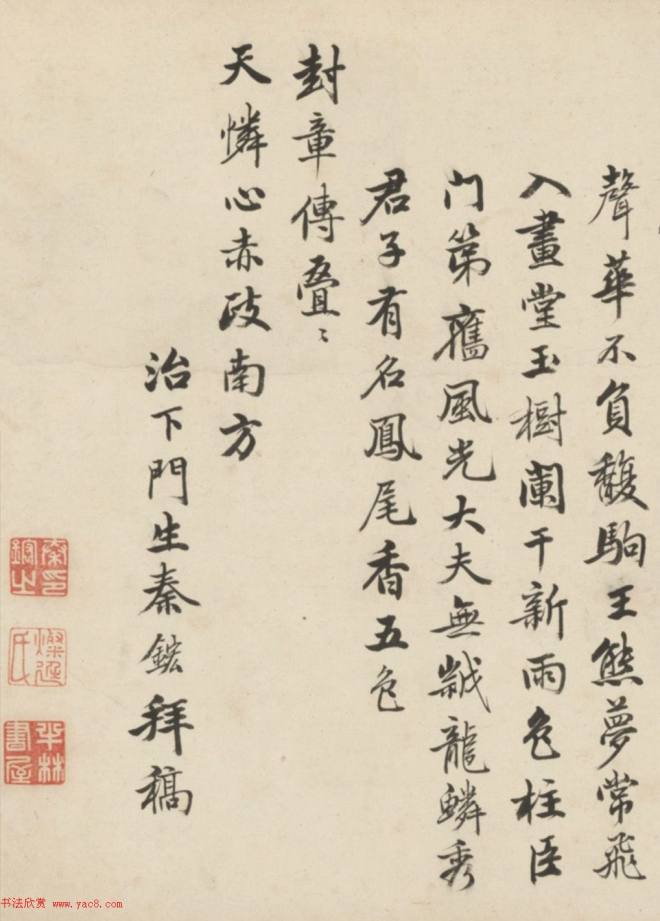 聲華不負馥駒王熊夢常飛
入畫堂玉樹闌干新雨色柱臣
门第舊風光大夫無龍鱗秀
君子有名鳳尾香五色
封章傳疊〻
天憐心赤政南方
治下門生秦鋐拜稿
秦印鋐之
燦廷氏
半林書屋
书法欣赏 www.yac8.com